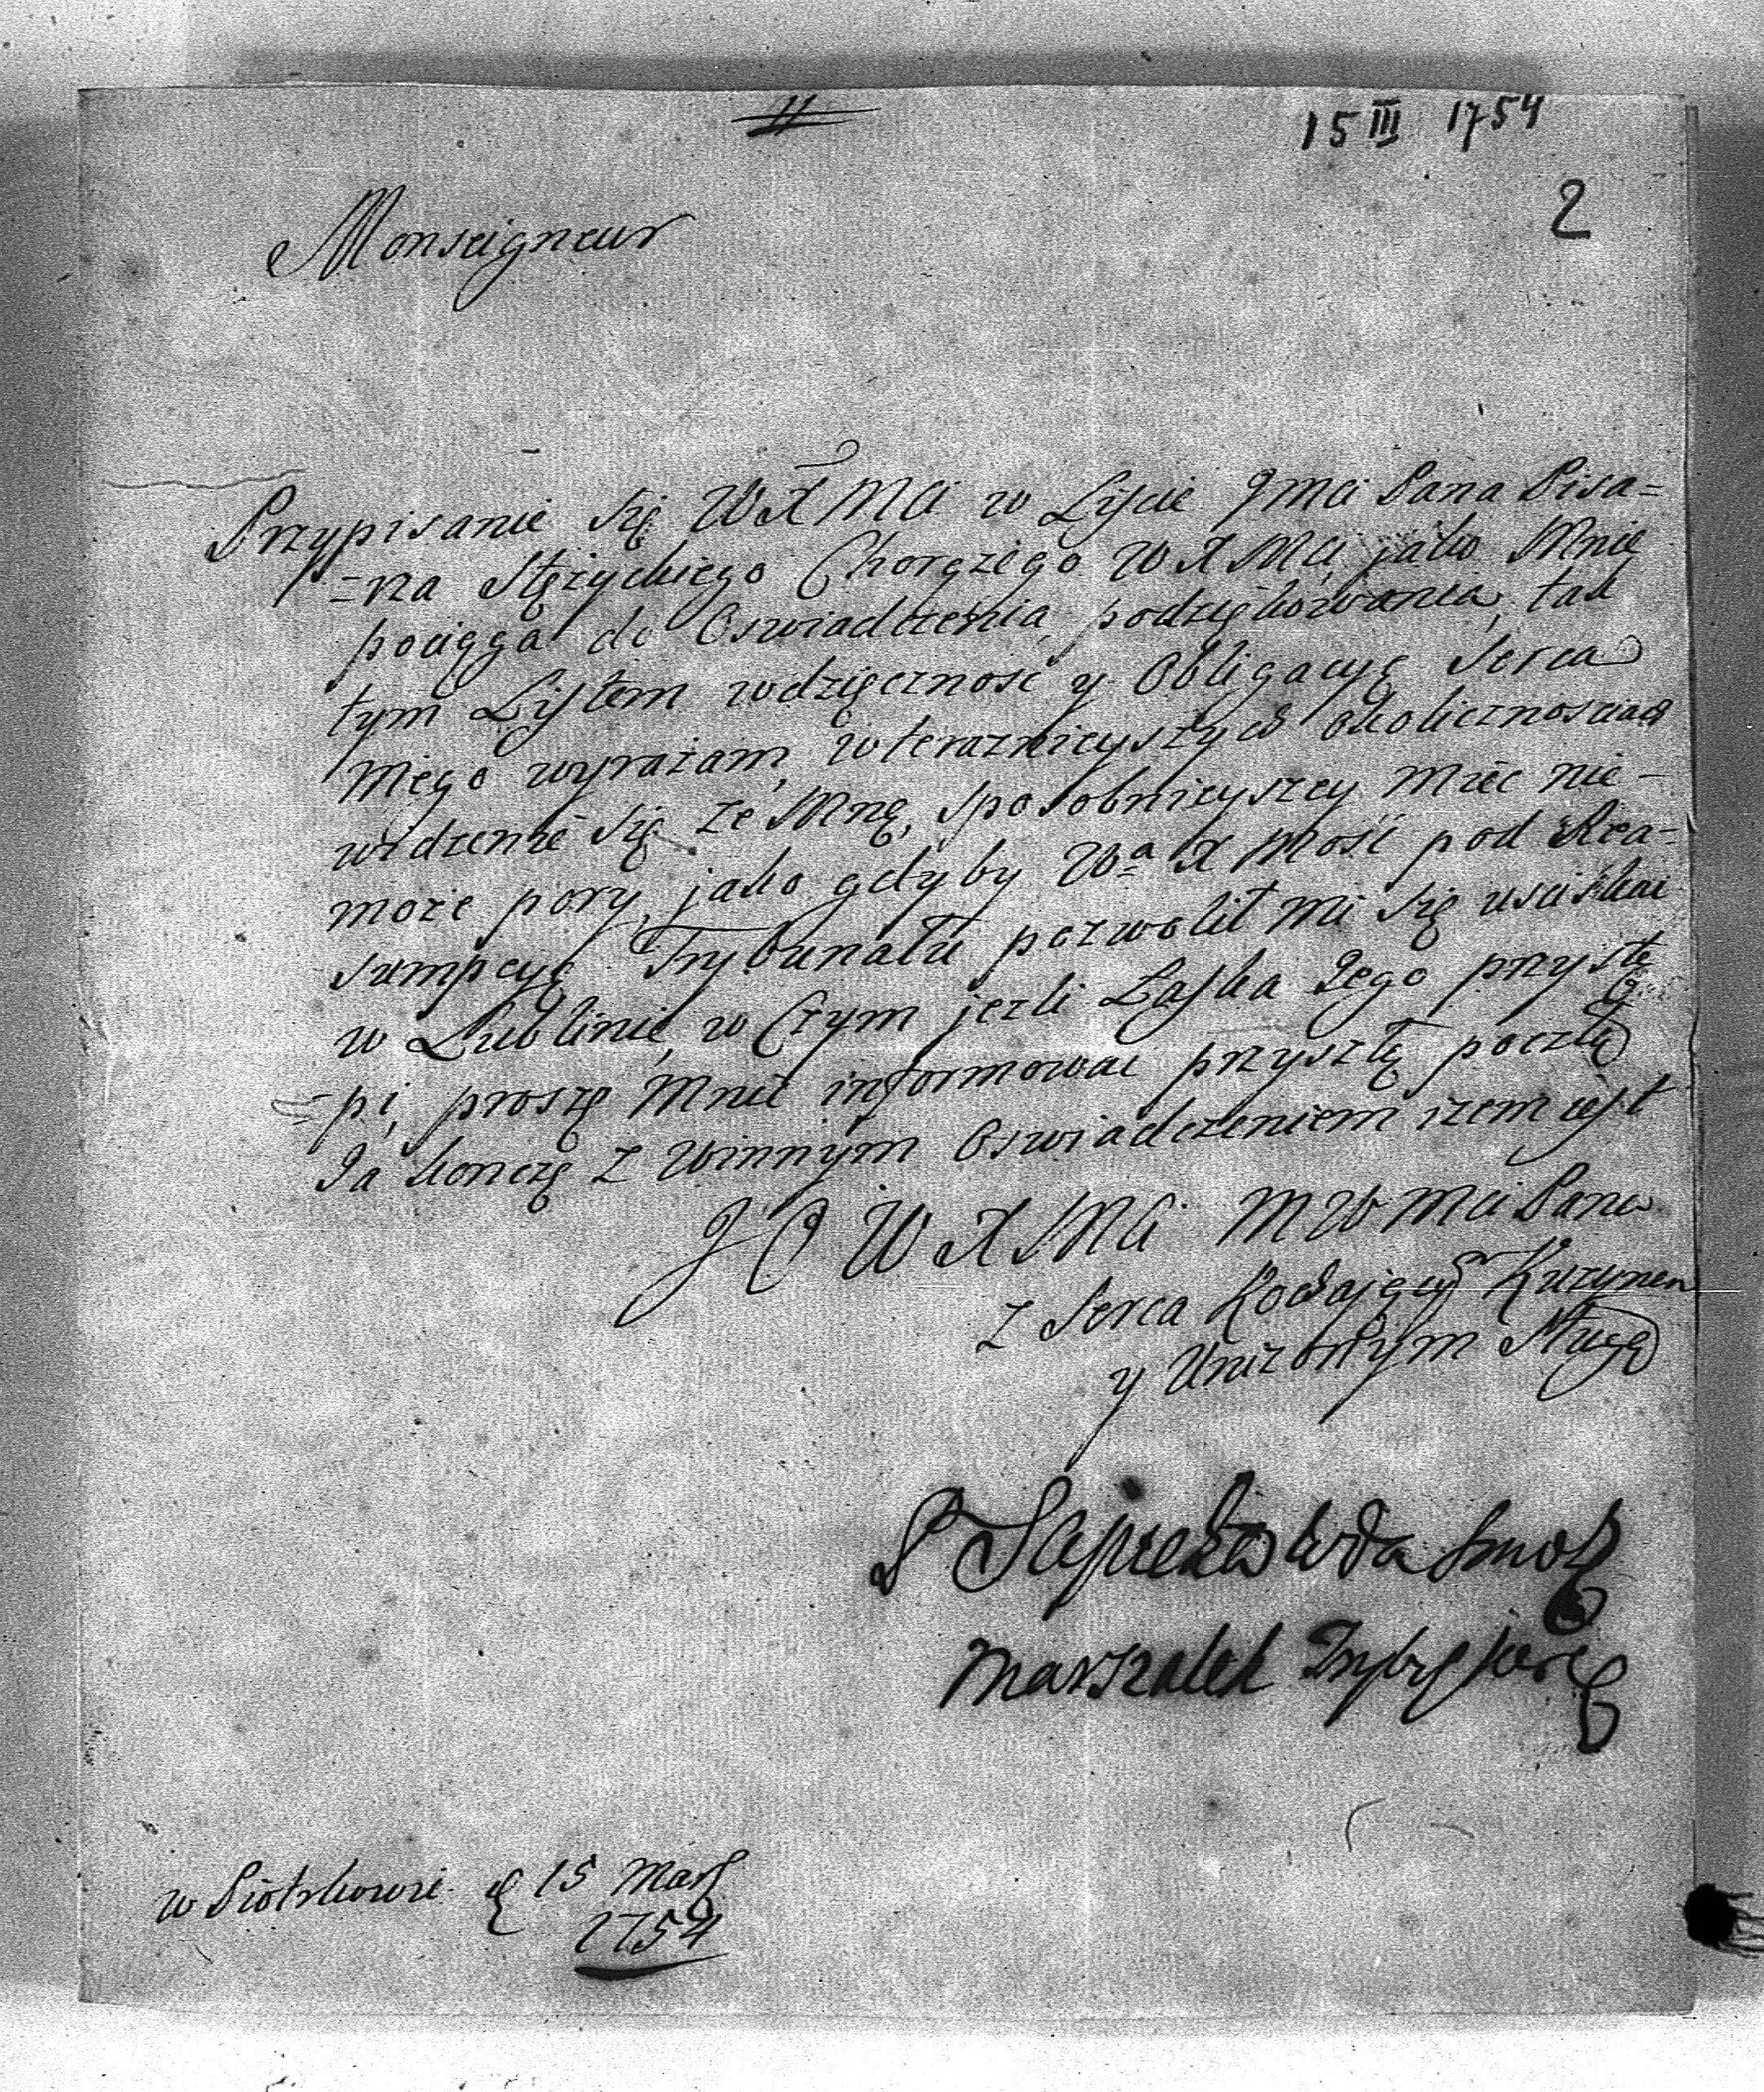 15 III 1754
2
Monseigneur
Przypisanie się WX Mci w Lyscie Jmci Pana Pisa=
=rza Stężyckiego Chorążego WX Mci, jako Mnie
pociąga do Oswiadczenia podziękowania, tak
tym Listem wdzięczność y Obligacyę Serca
Mego wyrażam, w teraznieyszych okolicznosciach
widzenie się ze Mną, sposobnieyszey Miec nie-
może pory, jako gdyby Wa X Mość pod Rea-
sumpcyę Trybunału pozwolił mi się usciskac
w Lublinie, w Czym jezli Łaska Jego przystę
=pi, proszę Mnie informowac przyszłą pocztą
Ja konczę z Winnym Oswiadczeniem izem iest
J O W X Mci M W Mci Pana
z Serca Kochającym Kuzynem
y Unizonym Sługą
P Sapieha Wda Smol
Marszałek Tryb
w Piotrkowie d 15 Mar
1754